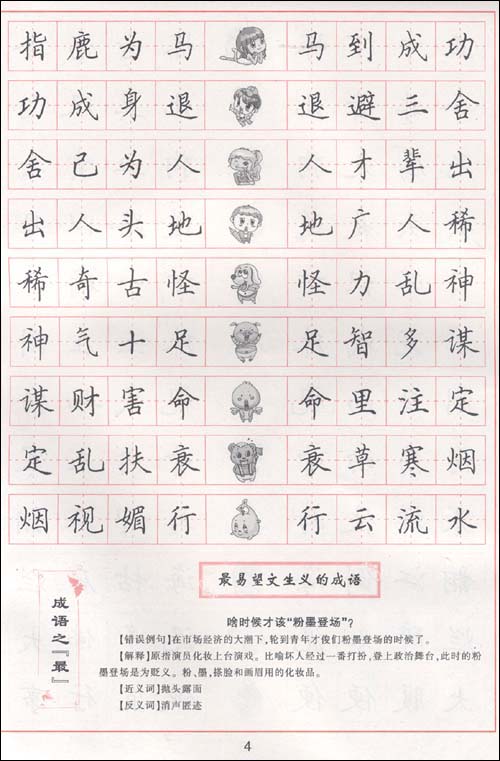 指鹿为马 马到成功
功成身退 退避三舍
舍己为人 人才辈出
出人头地 地广人稀
稀奇古怪 怪力乱神
神气十足 足智多谋
谋财害命 命里注定
定乱扶衰 衰草寒烟
烟视媚行 行云流水
最易望文生义的成语
成语之『最』
啥时候才该“粉墨登场”?
【错误例句】在市场经济的大潮下,轮到青年才俊们粉墨登场的时候了。
【解释】原指演员化妆上台演戏。比喻坏人经过一番打扮,登上政治舞台,此时的粉
墨登场是为贬义。粉、墨,搽脸和画眉用的化妆品。
【近义词】抛头露面
【反义词】消声匿迹
4